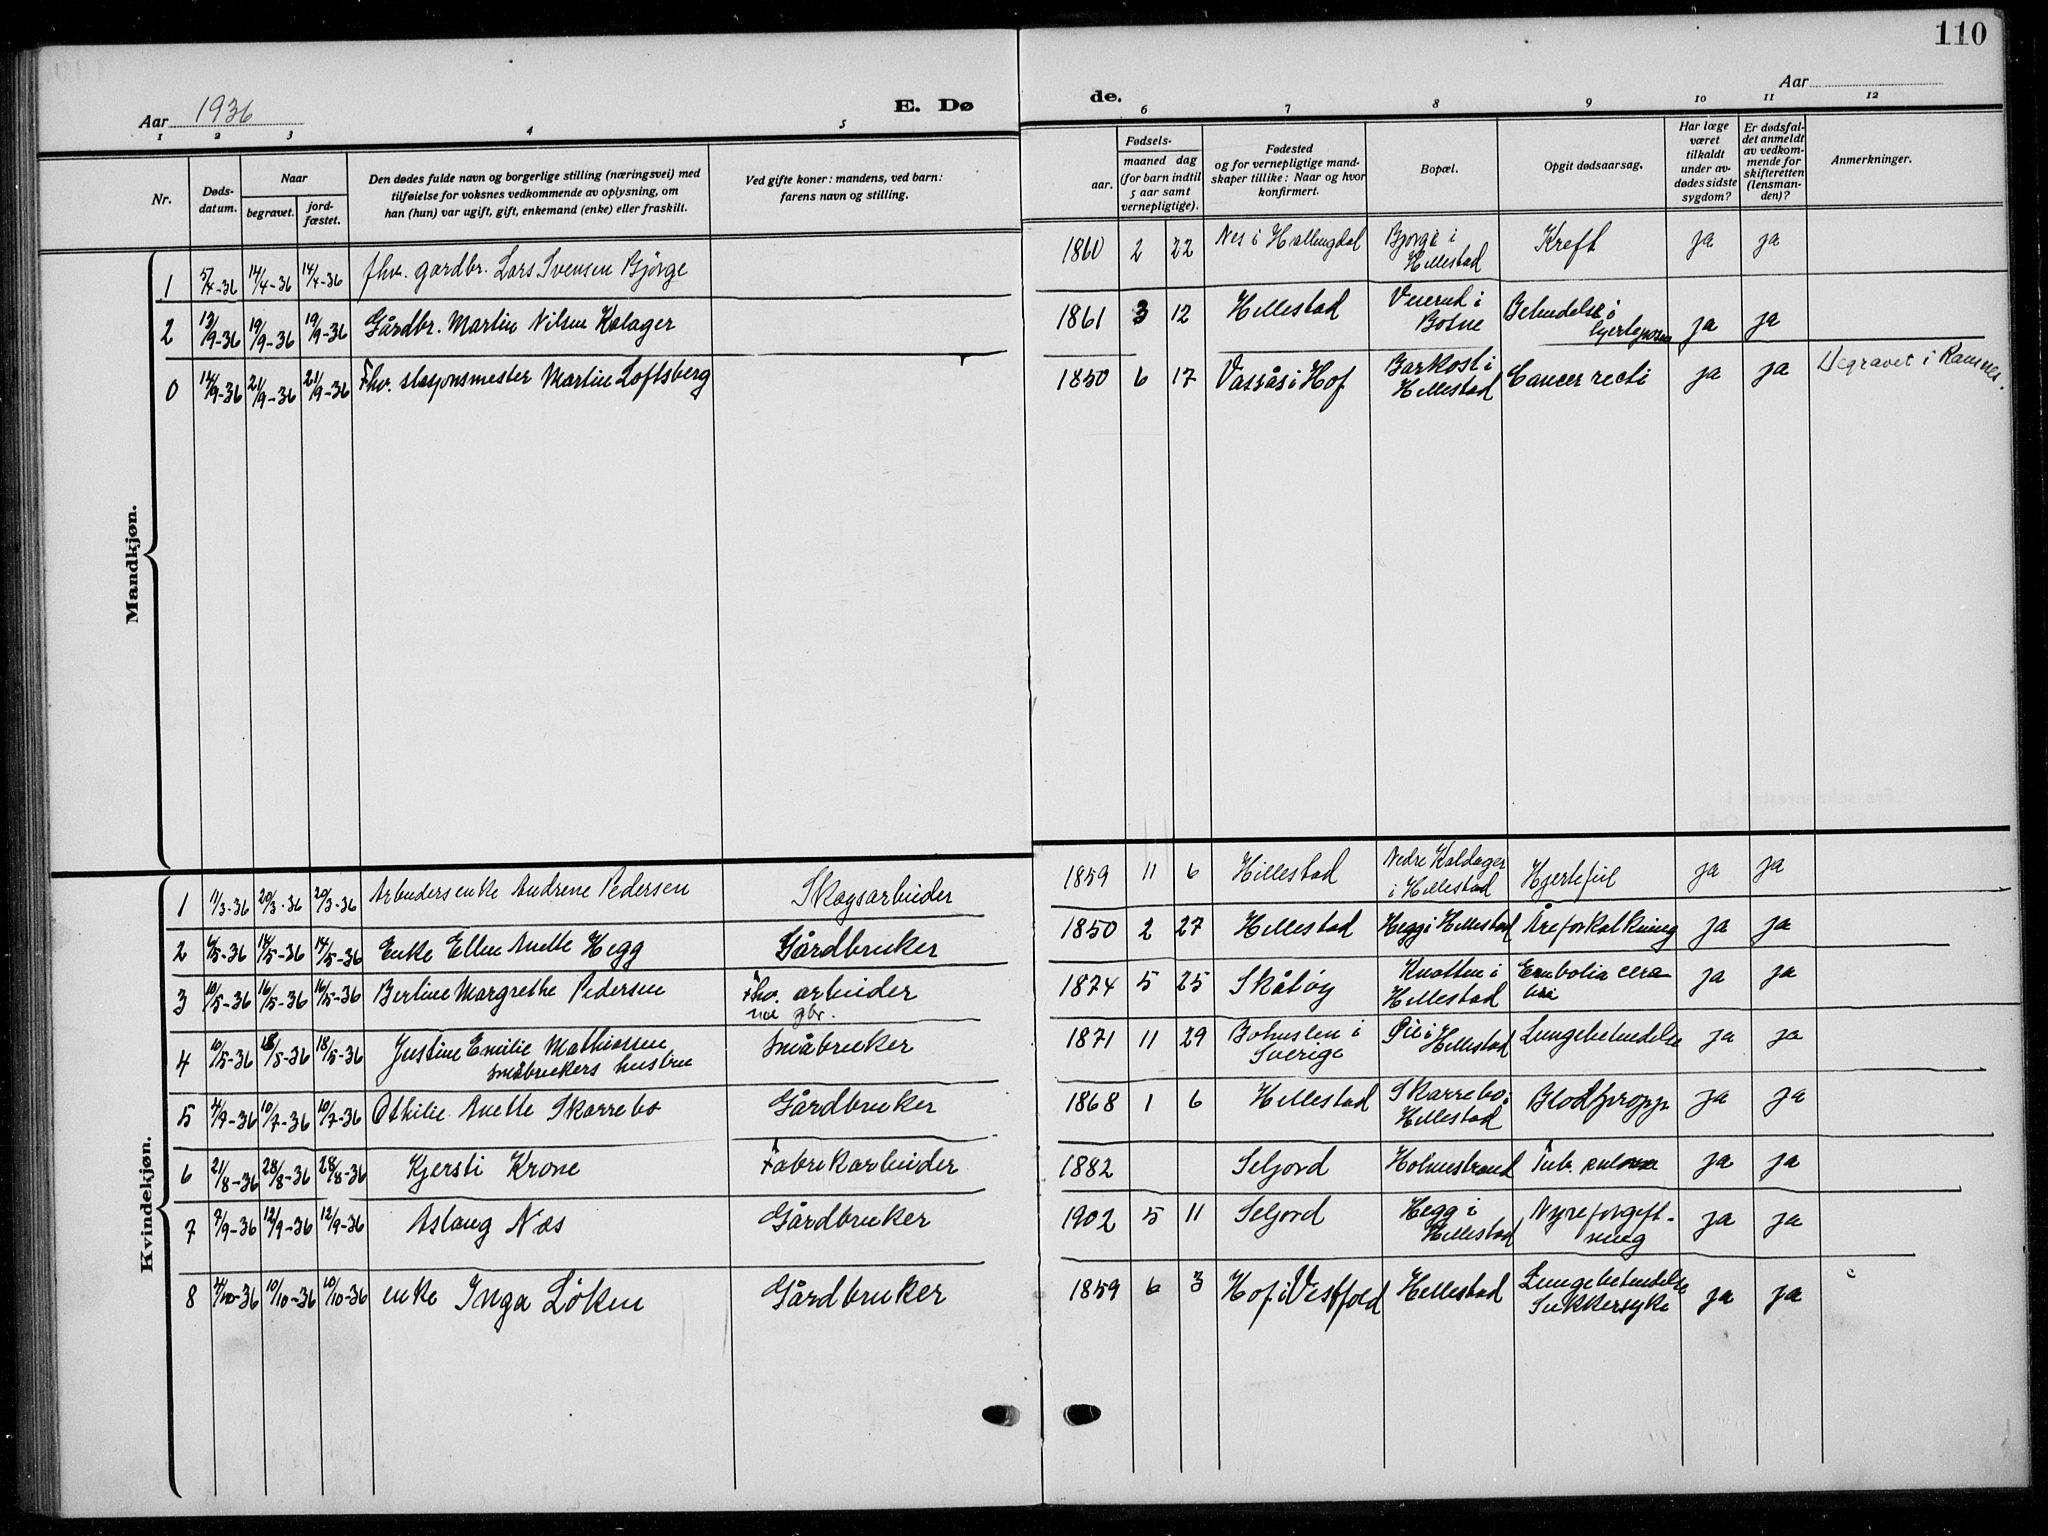 110
Aar 1936
E. Dø
de.
Aar
1 2 3 4 5 6 7 8 9 10 11 12
Nr.
Døds-
datum.
Naar
begravet.
jord-
fæstet.
Den dødes fulde navn og borgerlige stilling (næringsvei) med
tilføielse for voksnes vedkommende av oplysning, om
han (hun) var ugift, gift, enkemand (enke) eller fraskilt.
Ved gifte koner: mandens, ved barn:
farens navn og stilling.
Fødsels-
aar.
maaned dag
(for barn indtil
5 aar samt
vernepligtige).
Fødested
og for vernepligtige mand-
skaper tillike: Naar og hvor
konfirmert.
Bopæl.
Opgit dødsaarsag.
Har læge
været
tilkaldt
under av-
dødes sidste
sygdom?
Er dødsfal-
det anmeldt
av vedkom-
mende for
skifteretten
(lensman-
den)?
Anmerkninger.
Mandkjøn.
1 5/4-36 14/4-36 14/4-36 fhv. gardbr. Lars Svensen Bjørge 1860 2 22 Nes i Hallingdal Bjørge i Hillestad Kreft ja ja
2 13/9-36 19/9-36 19/9-36 Gårdbr. Martin Nilsen Kalager 1861 3 12 Hillestad i Botne Betendelse i hjerteposen ja ja
0 14/9-36 21/9-36 21/9-36 Fhv. stasjonsmester Martin Loftsberg 1850 6 17 Vassås i Hof Barkost i Hillestad Cancer recti ja ja Begravet i Ramnes.
Kvindekjøn.
1 11/3-36 20/3-36 20/3-36 Arbeidersenke Andrene Pedersen Skogsarbeider 1859 11 6 Hillestad Nedre Kaldager i Hillestad Hjertefeil ja ja
2 6/5-36 14/5-36 14/5-36 Enke Ellen Anette Hegg Gårdbruker 1850 2 27 Hillestad Hegg i Hillestad Åreforkalkning ja ja
3 10/5-36 16/5-36 16/5-36 Berline Margrethe Pedersen Fhv. arbeider nu gbr. 1874 5 25 Skåtøy Knatten i Hillestad Embolia cerebri ja ja
4 10/5-36 18/5-36 18/5-36 Justine Emilie Mathiassen småbrukers hustru Småbruker 1871 11 29 Bohuslen i Sverige Øie i Hillestad Lungebetendelse ja ja
5 4/7-36 10/7-36 10/7-36 Othilie Anette Skarrebo Gårdbruker 1868 1 6 Hillestad Skarrebo i Hillestad Blodpropp ja ja
6 21/8-36 28/8-36 28/8-36 Kjersti Krone Fabrikarbeider 1882 Seljord Holmestrand Tub. pulm ja ja
7 7/9-36 12/9-36 12/9-36 Aslaug Næs Gårdbruker 1902 5 11 Seljord Hegg i Hillestad Nyreforgiftning ja ja
8 4/10-36 10/10-36 10/10-36 enke Inga Løken Gårdbruker 1859 6 3 Hof i Vestfold Hillestad Lungebetendelse Sukkersyke ja ja